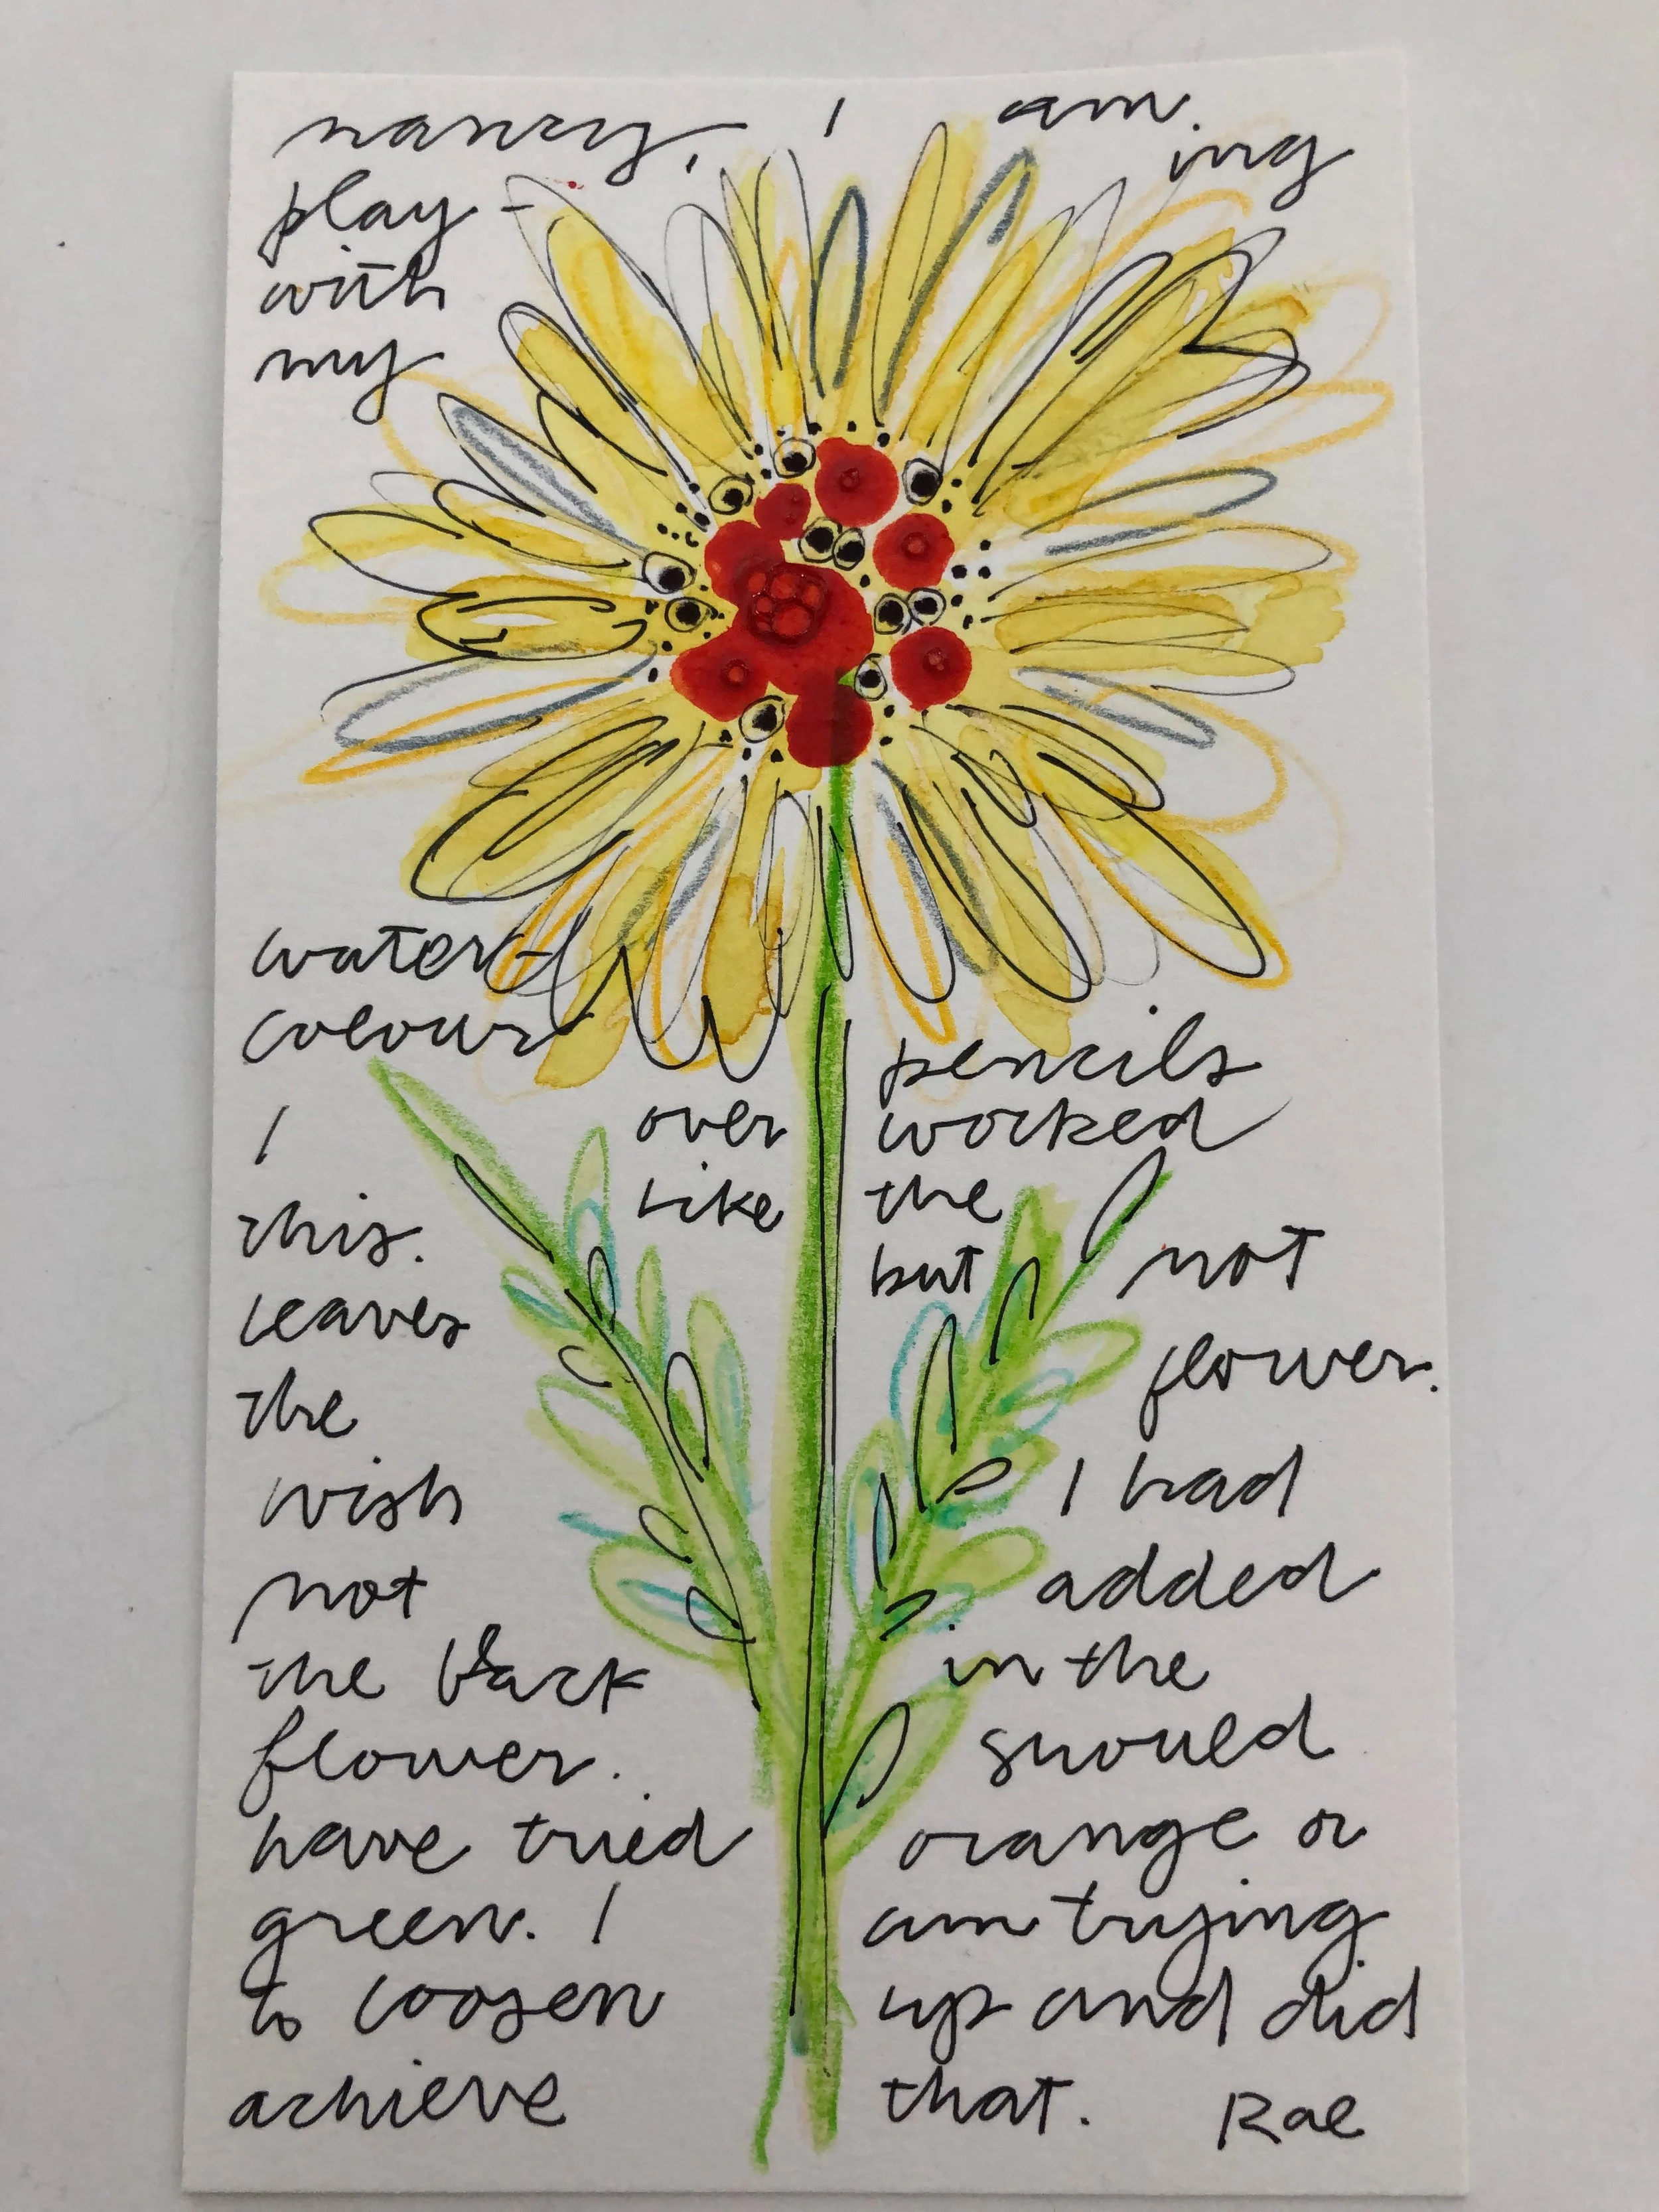 nancy, I am
play-ing
with
my
water-
colour pencils
I over worked
this. Like the
leaves but not
the flower.
wish I had
not added
the black in the
flower. should
have tried orange or
green. I am trying
to loosen up and did
achieve that. Rae